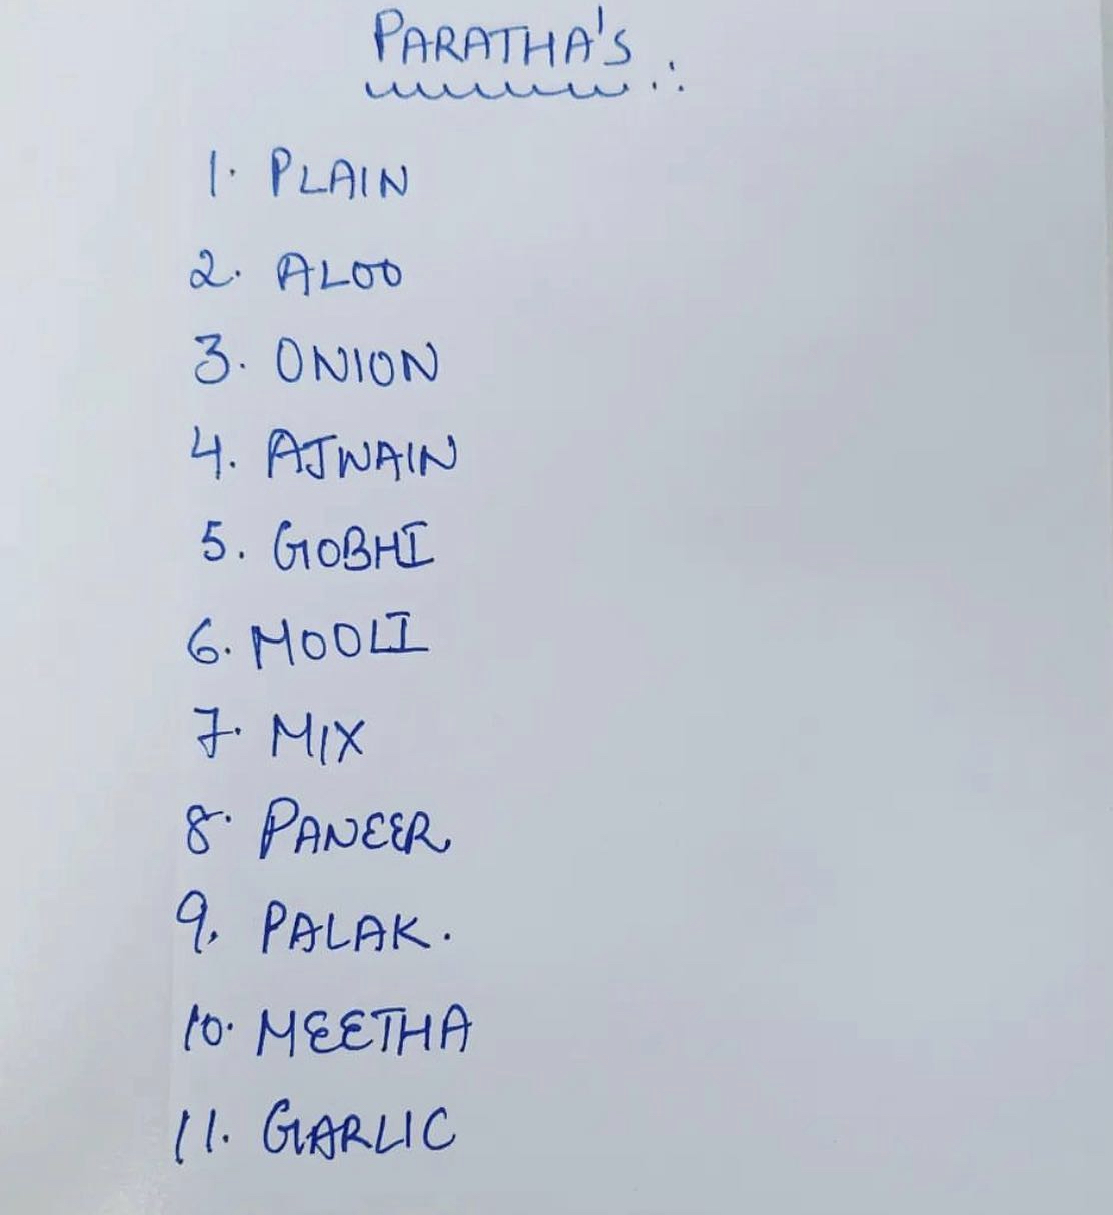 PARATHA'S :
1. PLAIN
2. ALOO
3. ONION
4. AJWAIN
5. GOBHI
6. MOOLI
7. MIX
8. PANEER
9. PALAK.
10. MEETHA
11. GARLIC